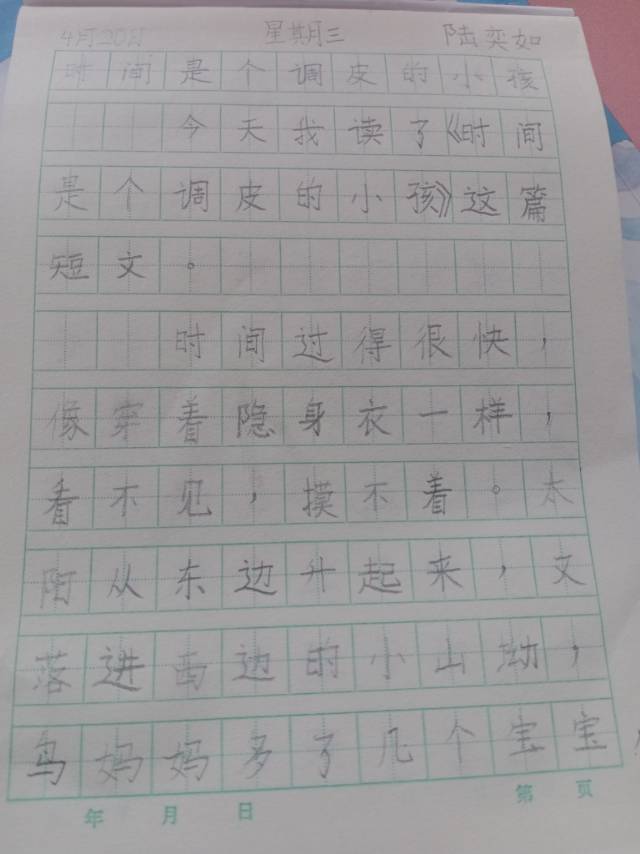 4月20日 星期三 陆奕如
时间是个调皮的小孩
今天我读了《时间
是个调皮的小孩》这篇
短文。
时间过得很快，
像穿着隐身衣一样，
看不见，摸不着。太
阳从东边升起来，又
落进西边的小山坳，
鸟妈妈多了几个宝宝，
年 月 日 第 页